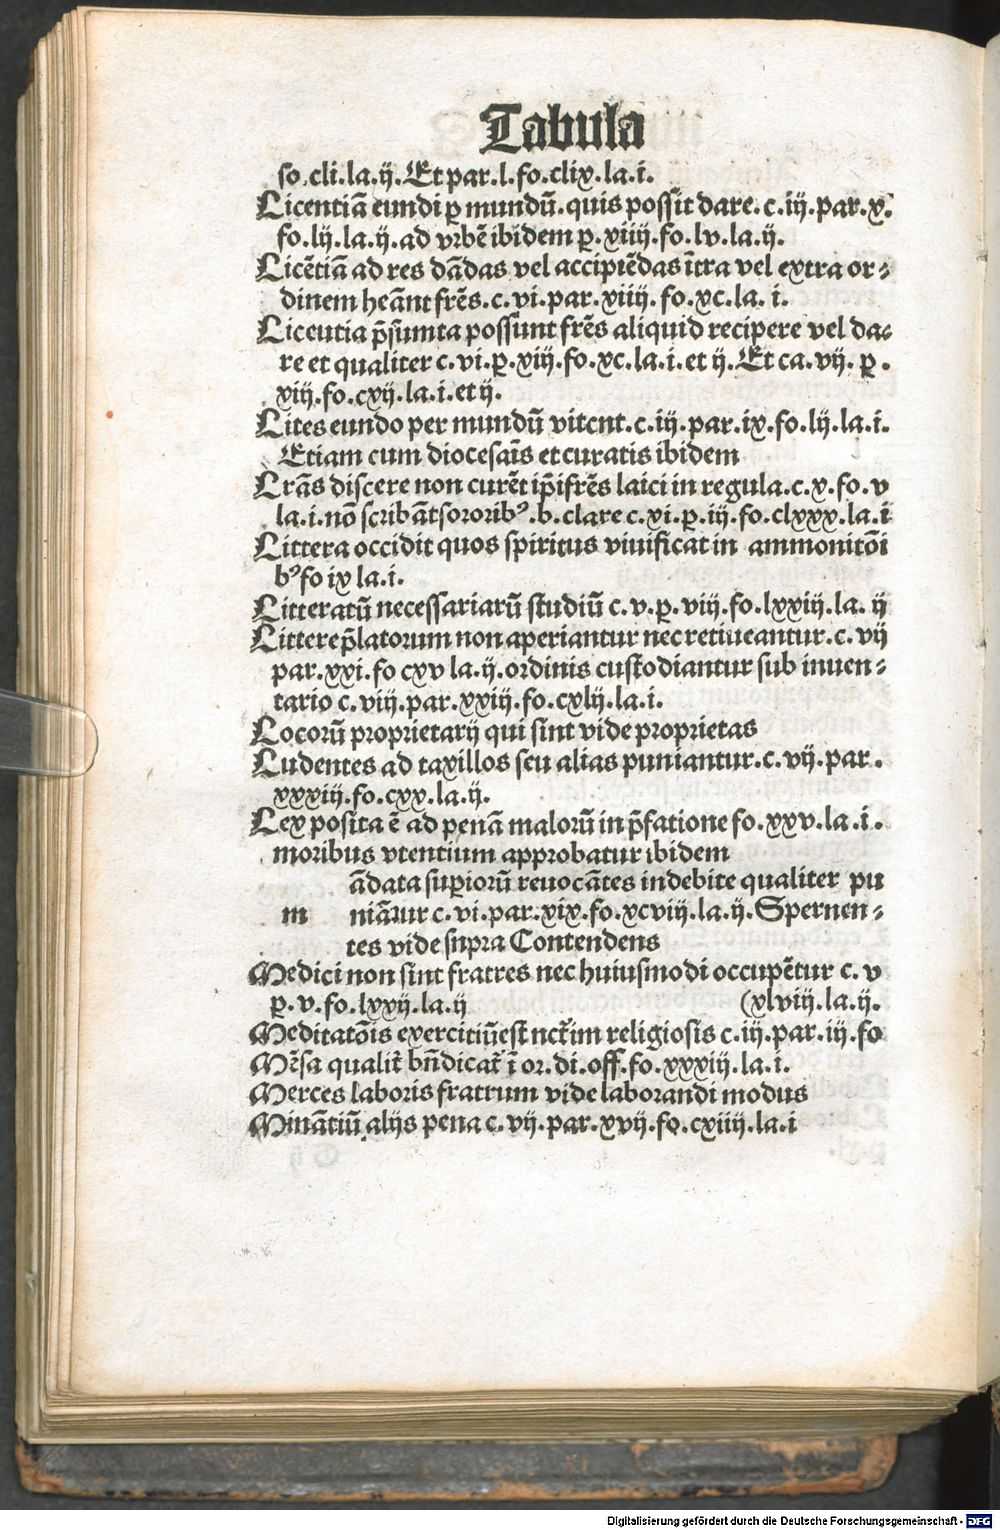 Tabula
fo.cli.la.ij.Et par.l.fo.clix.la.i.
Licentiā eundi ꝑ mundū.quis possit dare.c.iij.par.x.
fo.lij.la.ij.ad vrbē ibidem ꝑ.xiiij.fo.lv.la.ij.
Licētiā ad res dādas vel accipiēdas ītra vel extra or⸗
dinem heānt frēs.c.vi.par.xiiij.fo.xc.la.i.
Liceutia p̄sumta possunt frēs aliquid recipere vel da⸗
re et qualiter c.vi.ꝑ.xiij.fo.xc.la.i.et ij.Et ca.vij.ꝑ.
xiij.fo.cxij.la.i.et ij.
Lites eundo per mundū vitent.c.iij.par.ix.fo.lij.la.i.
Etiam cum diocesaīs et curatis ibidem
Lrās discere non curēt ip̄i frēs laici in regula.c.x.fo.v
la.i.nō scribāt sororibꝰ.b.clare c.xi.ꝑ.iij.fo.clxxx.la.i
Littera occidit quos spiritus viuificat in ammonitōi
bꝰ fo ix la.i.
Litteratū necessariarū studiū c.v.ꝑ.viij.fo.lxxiij.la.ij
Littere p̄latorum non aperiantur nec retiueantur.c.vij
par.xxi.fo cxv la.ij.ordinis custodiantur sub inuen⸗
tario c.viij.par.xxiij.fo.cxlij.la.i.
Locorū proprietarij qui sint vide proprietas
Ludentes ad taxillos seu alias puniantur.c.vij.par.
xxxiij.fo.cxx.la.ij.
Lex posita ē ad penā malorū in p̄fatione fo.xxv.la.i.
moribus vtentium approbatur ibidem
ādata suꝑiorū reuocātes indebite qualiter pu
m niātur c.vi.par.xix.fo.xcviij.la.ij.Spernen⸗
tes vide snpra Contendens
Medici non sint fratres nec huiusmodi occupētur c.v
ꝑ.v.fo.lxxij.la.ij (xlviij.la.ij.
Meditatōis exercitiū est nctīm religiosis c.iij.par.iij.fo
Mēsa qualit̄ bn̄dicat̄ ī or.di.off.fo.xxxiij.la.i.
Merces laboris fratrum vide laborandi modus
Minātiū alijs pena c.vij.par.xvij.fo.cxiiij.la.i
Digitalisierung gefördert durch die Deutsche Forschungsgemeinschaft - DFG